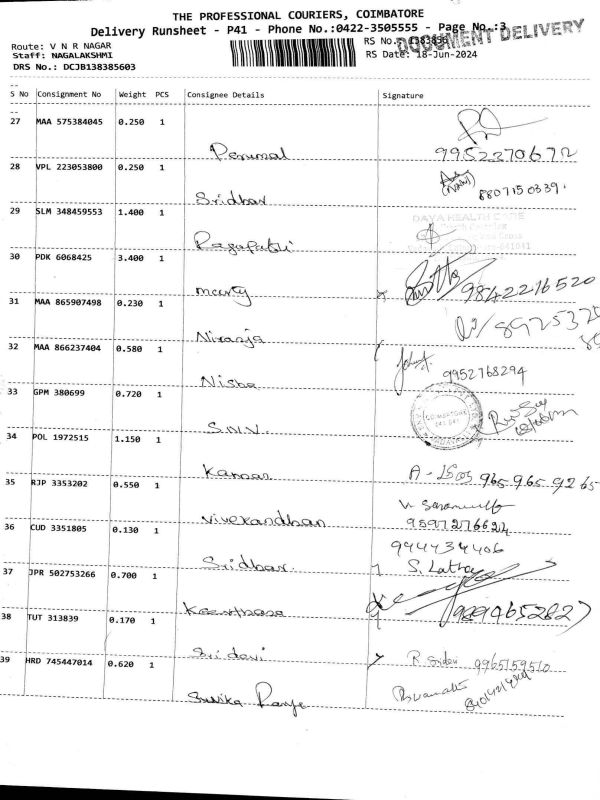 THE PROFESSIONAL COURIERS, COIMBATORE
Delivery Runsheet - P41 - Phone No.:0422-3505555 - Page No.:3
DOCUMENT DELIVERY
Route: V N R NAGAR
RS No.: 1383856
Staff: NAGALAKSHMI
RS Date: 18-Jun-2024
DRS No.: DCJB138385603
S No Consignment No Weight PCS Consignee Details Signature
27 MAA 575384045 0.250 1
Perumal 9952370672
28 VPL 223053800 0.250 1
Sridhar 8807150339.
29 SLM 348459553 1.400 1
DAYA HEALTH CARE
30 PDK 6068425 3.400 1
marty 9842216520
31 MAA 865907498 0.230 1
Niranja
32 MAA 866237404 0.580 1
Nisha 9952768294
33 GPM 380699 0.720 1
COIMBATORE
641 041
S.N.V.
34 POL 1972515 1.150 1
Kannan 965 965 9265
35 RJP 3353202 0.550 1
Vivekandhan 9597276624
36 CUD 3351805 0.130 1
9444734406
Sridhar. S. Latha
37 JPR 502753266 0.700 1
9899652827
38 TUT 313839 0.170 1
Sridevi 9965159510
39 HRD 745447014 0.620 1